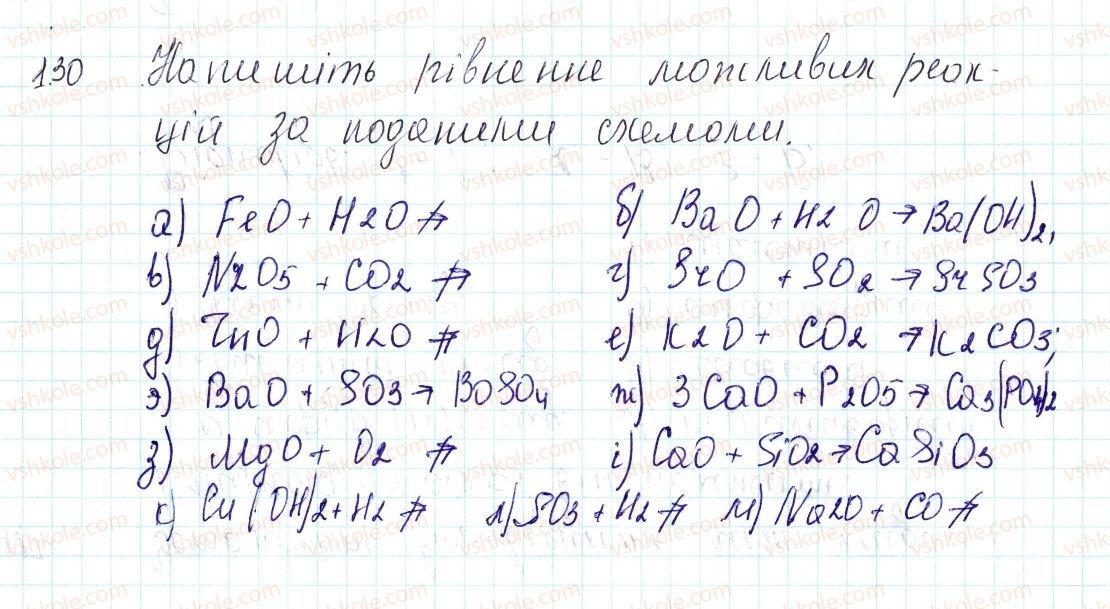 130 Напишіть рівненне можливих реак-
цій за поданими схемами.
а) FeO + H2O ⇸ б) BaO + H2O → Ba(OH)2,
в) N2O5 + CO2 ⇸ г) SrO + SO2 → SrSO3
д) ZnO + H2O ⇸ е) K2O + CO2 → K2CO3;
э) BaO + SO3 → BaSO4 ж) 3CaO + P2O5 → Ca3(PO4)2
з) MgO + O2 ⇸ і) CaO + SiO2 → CaSiO3
к) Cu(OH)2 + H2 ⇸ л) SO3 + H2 ⇸ м) Na2O + CO ⇸